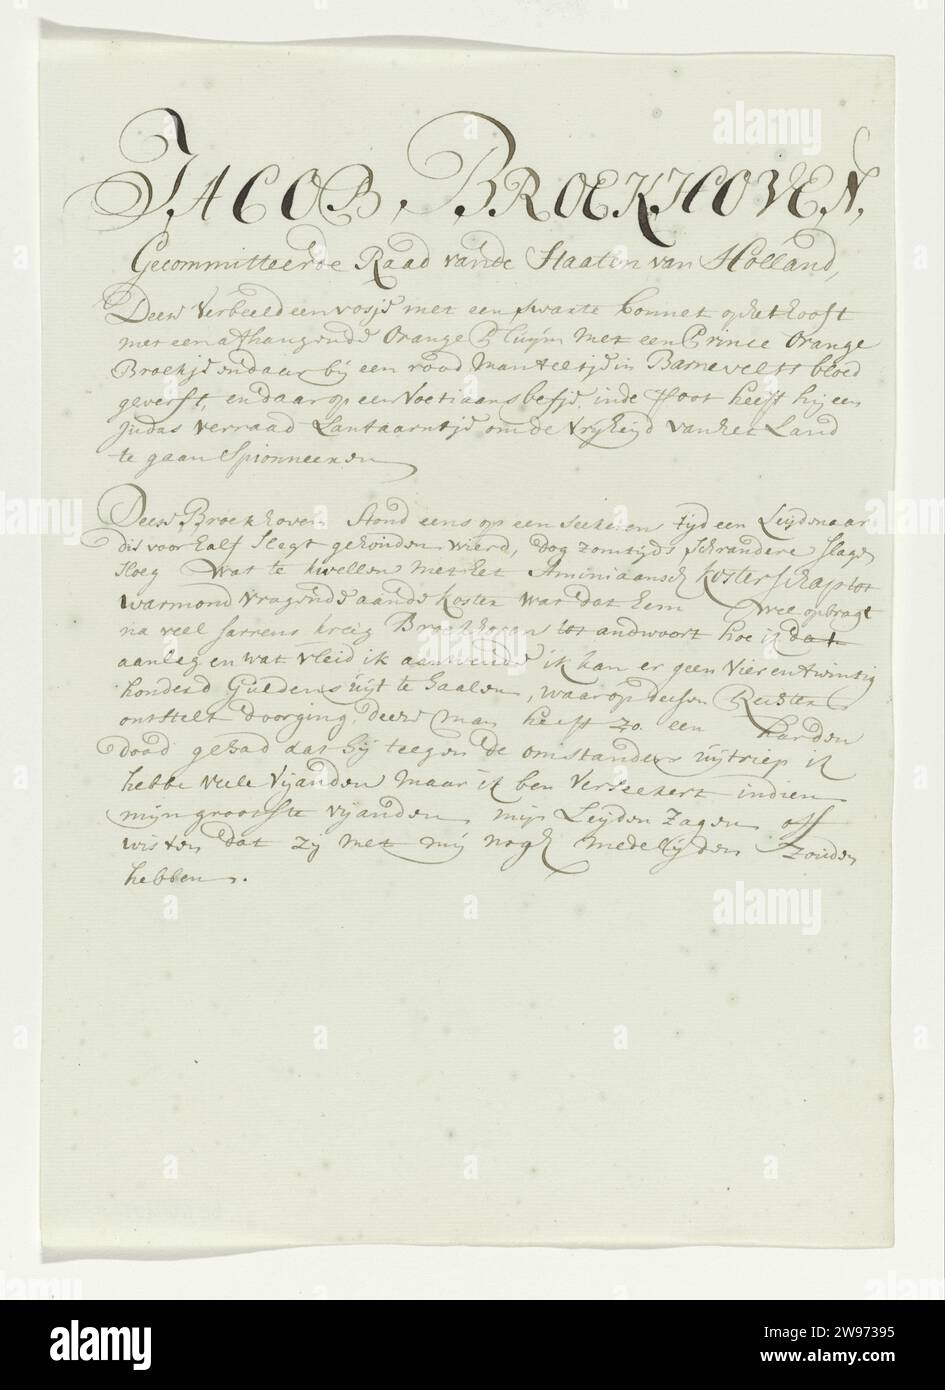 JACOB, BROEKHOVEN,
Gecommitteerde Raad vande Staaten van Holland,
Deese verbeeld een vosje met een swarte bonnet op het hooft
met een afhangende Orange Pluijm met een Prince Orange
Broekje en daar bij een rood manteltje in Barnevelts bloed
geverft, en daar op een Voetiaans befje, inde Poot heeft hij een
Judas verraad Lantaarntje om de Vryheyd van het Land
te gaan Spionneeren
Deese Broekhoven Stond eens op een seekeren tyd een Leydenaar
dis voor half Slegt gehouden wierd, dog zomtijds schrandere slagen
sloeg wat te kwellen met het Arminiaansch kosterschap tot
warmond vragende aande koster wat dat hem wel opbragt
na veel sarrens kreig Broekhoven tot andwoort hoe ik dat
aanleg en wat vleid ik aanwende ik kan er geen vierentwintig
honderd Guldens uijt te haalen, waar op deesen Rechter
ontstelt doorging, deese man heeft zo een harden
dood gehad dat hij teegen de omstanders uijtriep ik
hebbe veele vijanden maar ik ben verseekert indien
mijn grootste vijanden mijn Leijden zagen off
wisten dat zij met mij nogh medelijden zouden
hebben.
alamy
Image ID: 2W97395
www.alamy.com